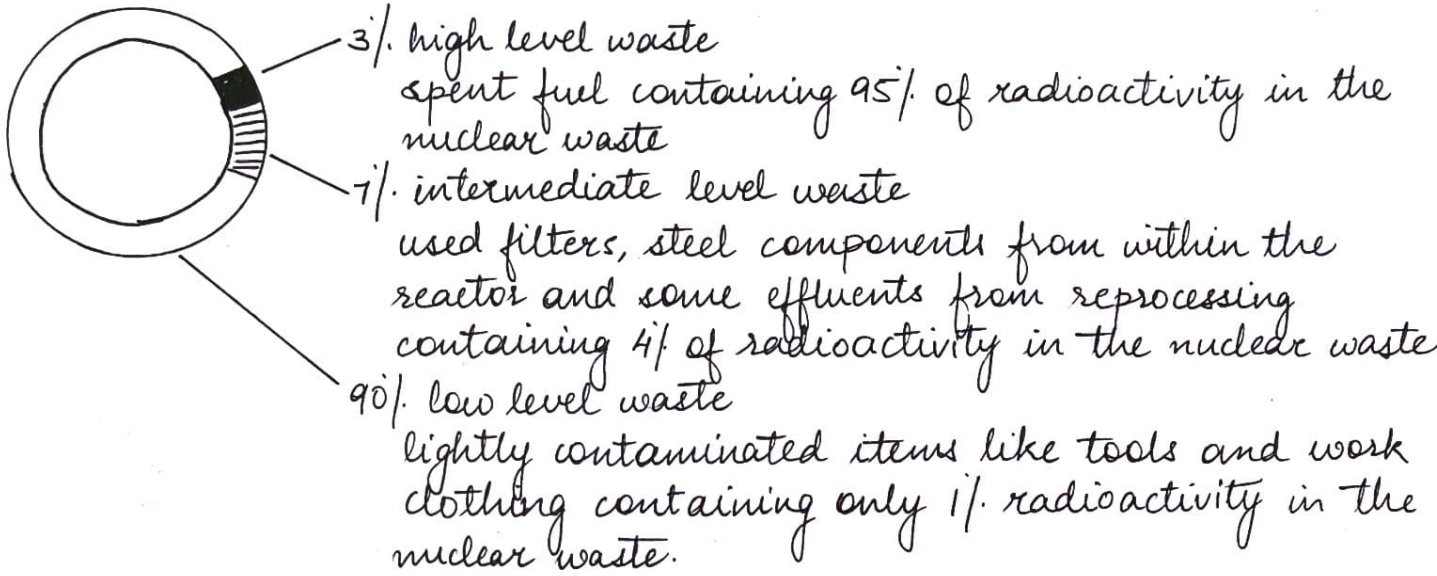 3% high level waste
spent fuel containing 95% of radioactivity in the
nuclear waste
7% intermediate level waste
used filters, steel components from within the
reactor and some effluents from reprocessing
containing 4% of radioactivity in the nuclear waste
90% low level waste
lightly contaminated items like tools and work
clothing containing only 1% radioactivity in the
nuclear waste.